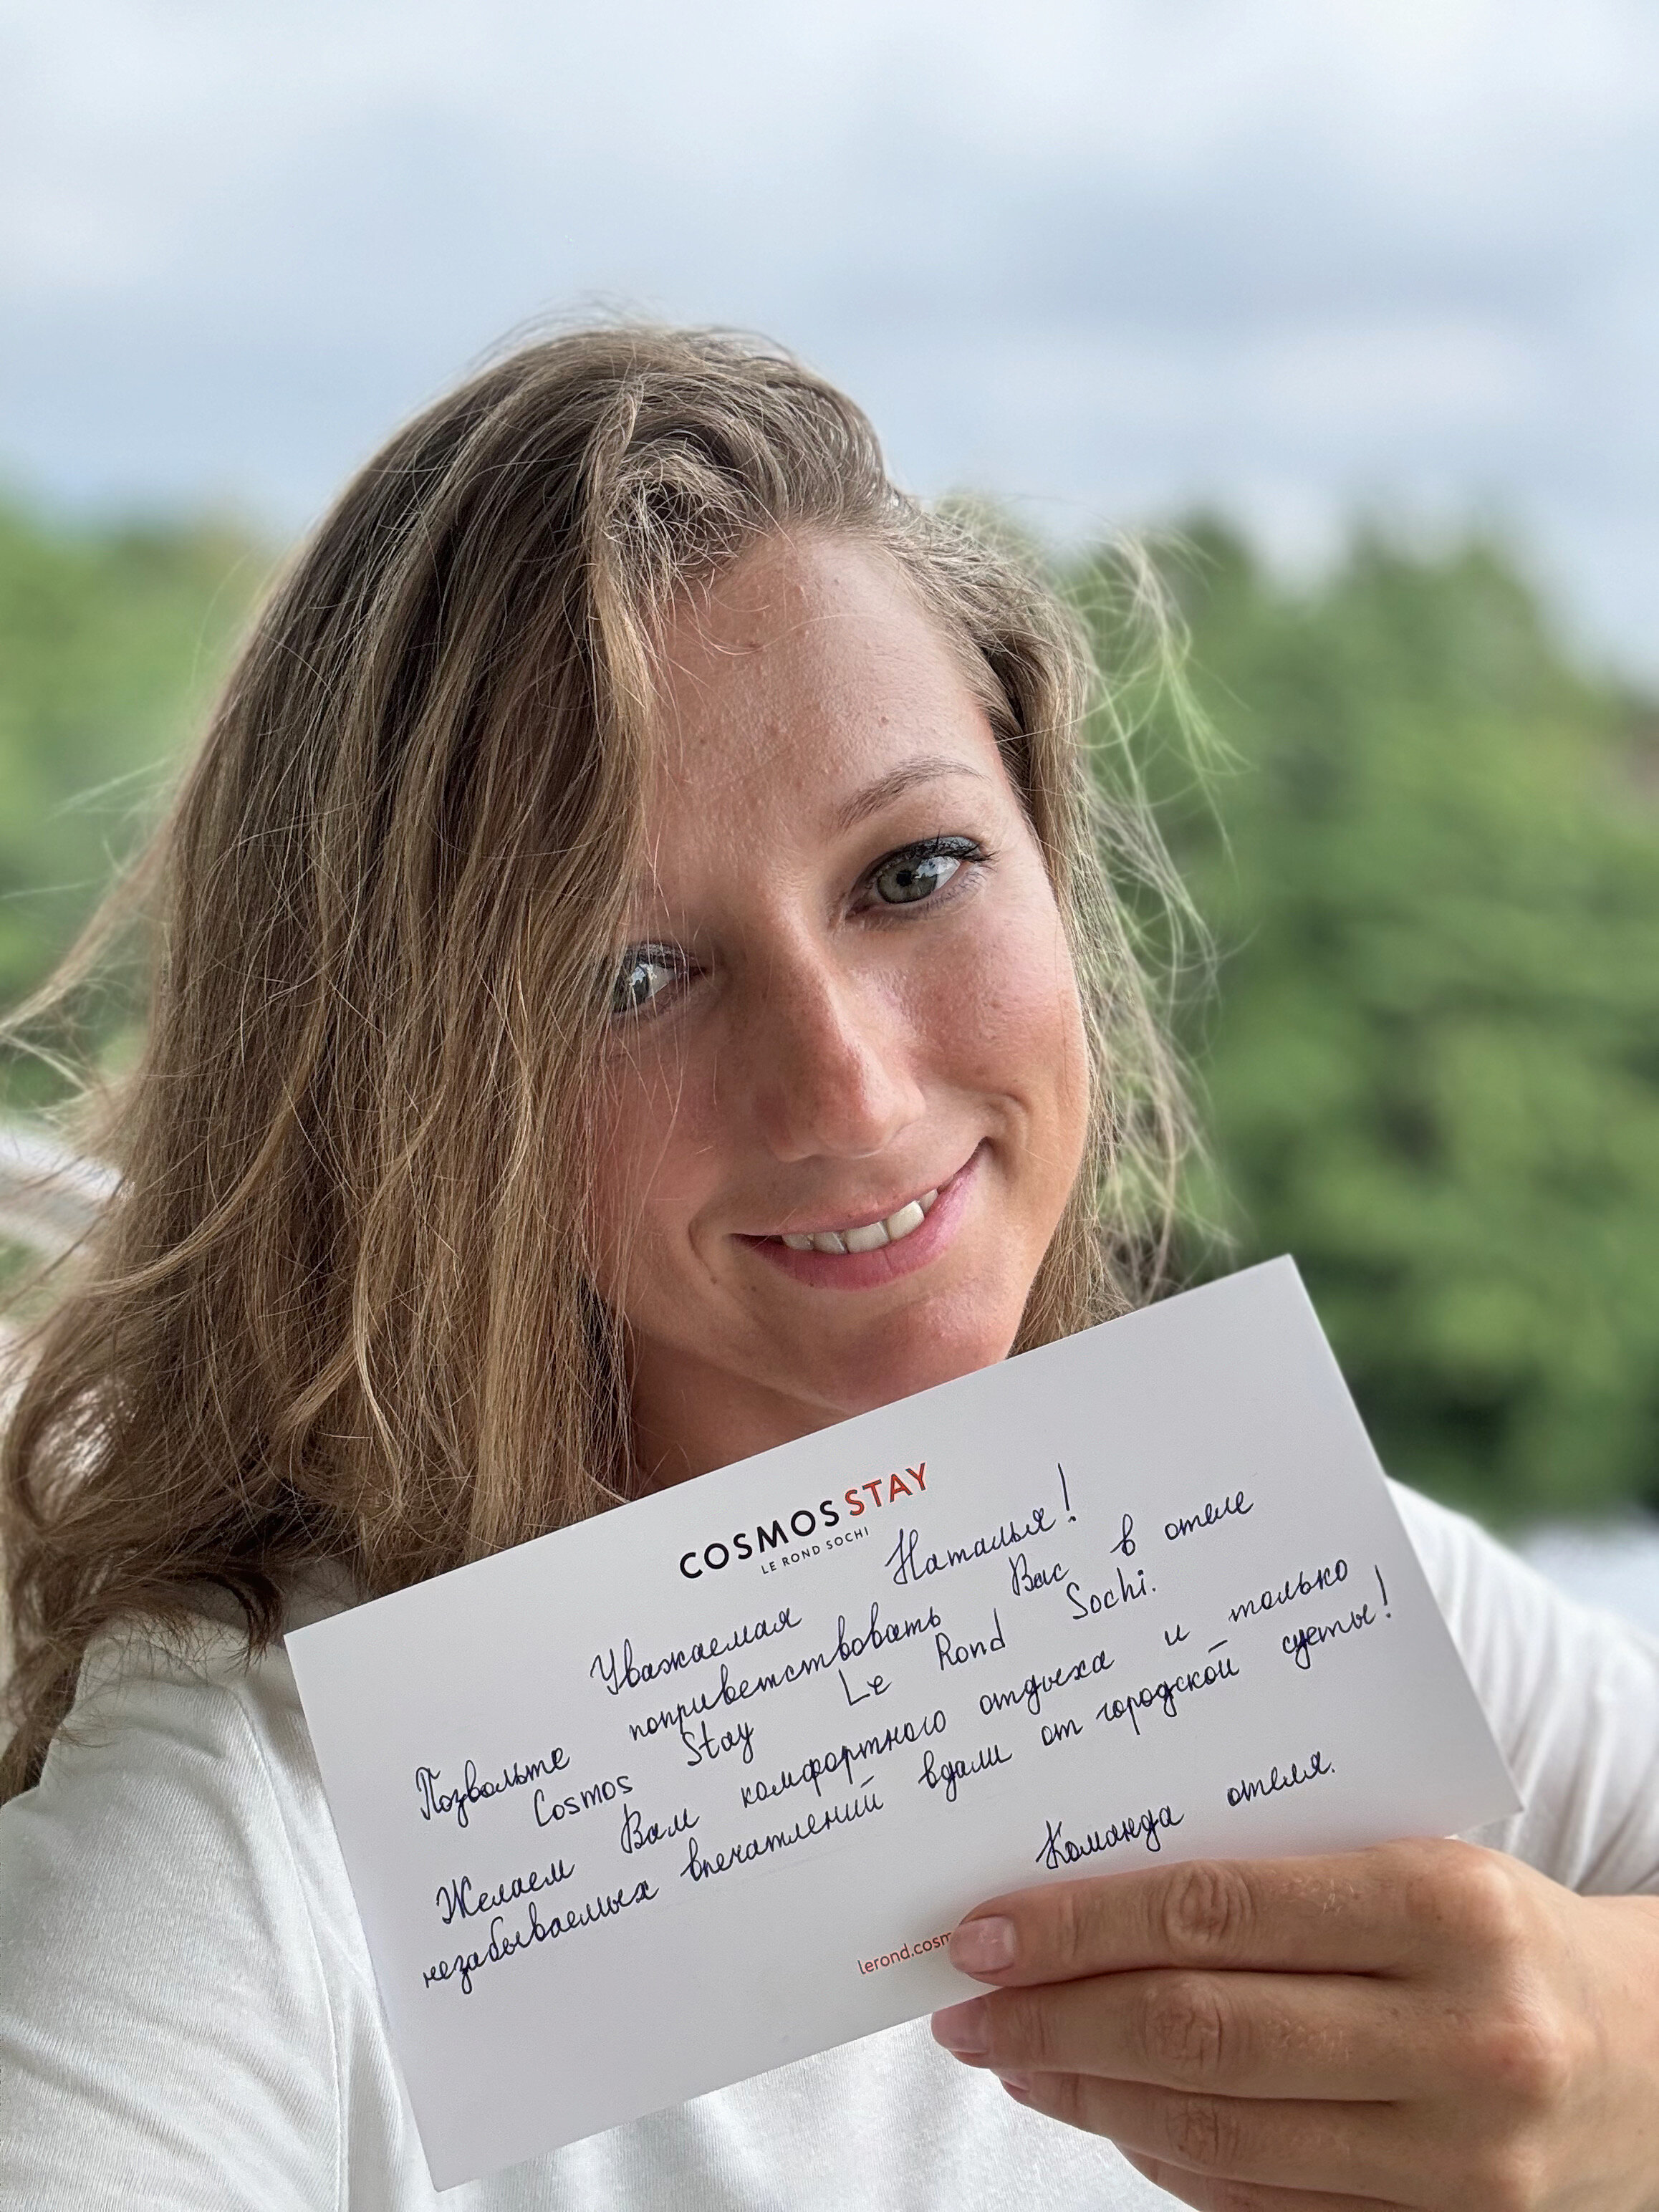 COSMOS STAY
LE ROND SOCHI
Уважаемая Наталья!
Позвольте поприветствовать Вас в отеле
Cosmos Stay Le Rond Sochi.
Желаем Вам комфортного отдыха и только
незабываемых впечатлений вдали от городской суеты!
Команда отеля.
lerond.cosm